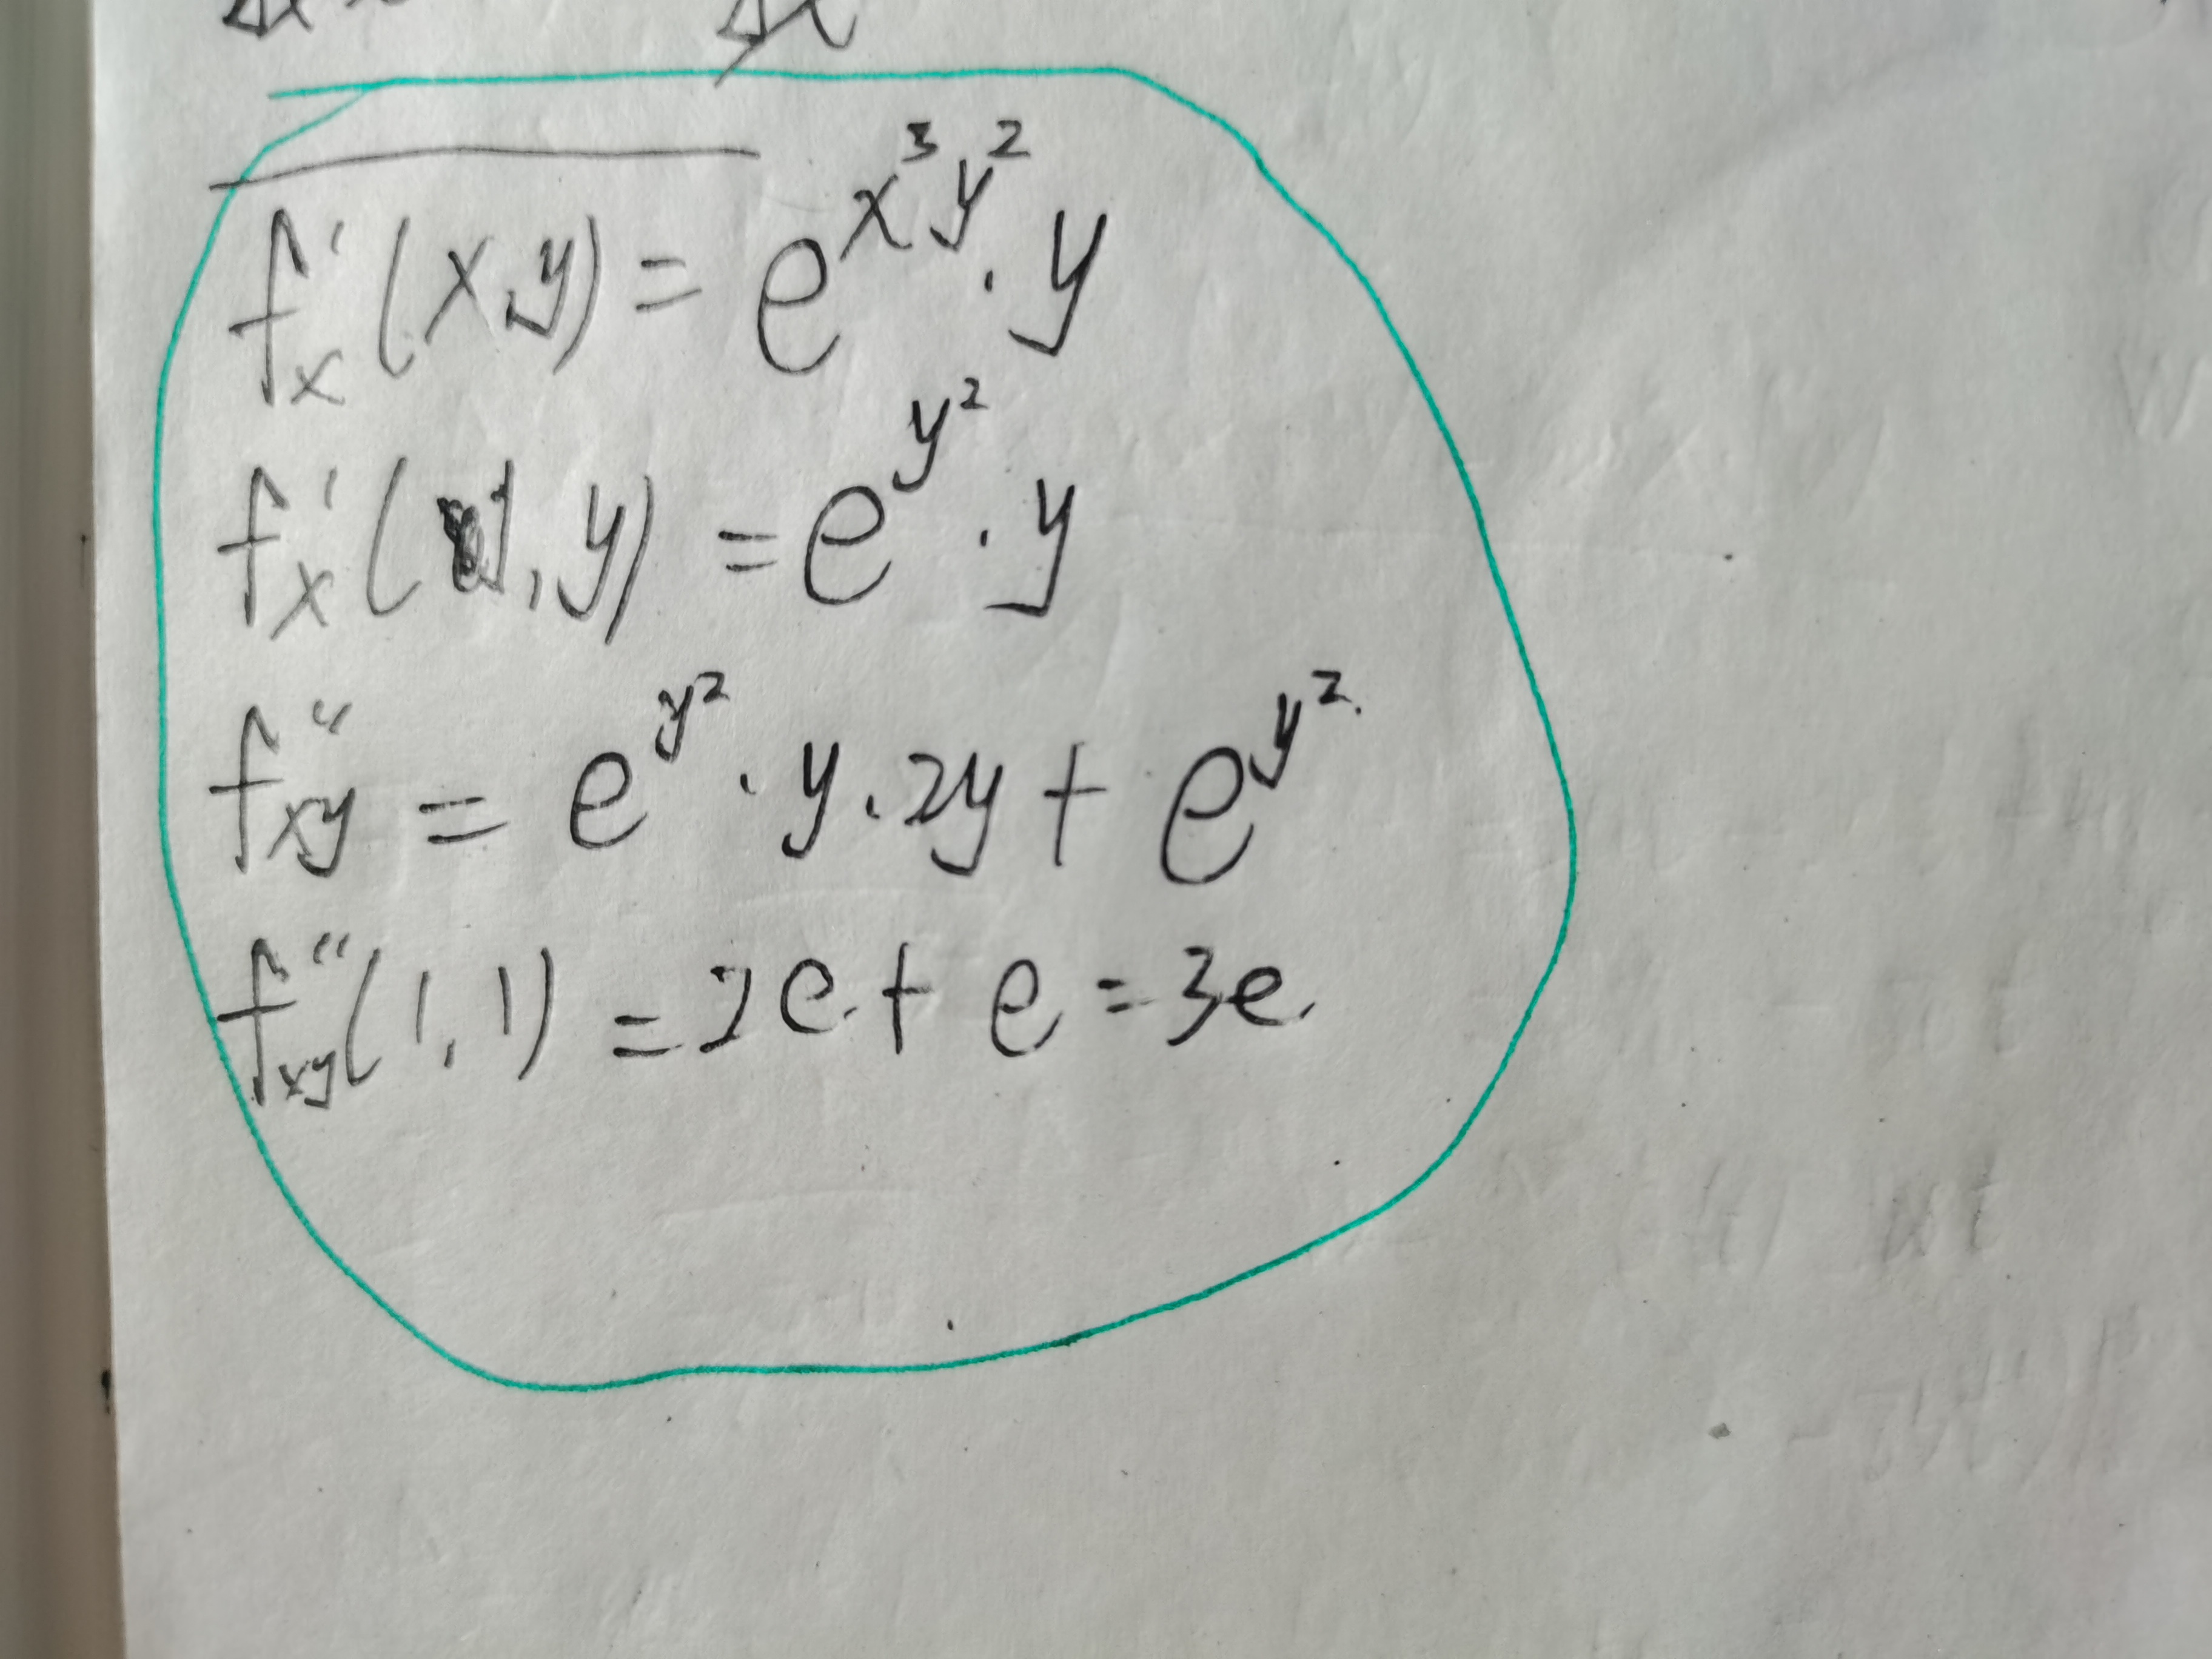 f'x(x,y) = e^{x^3y^2} · y
f'x(1,y) = e^{y^2} · y
f''xy = e^{y^2} · y · 2y + e^{y^2}.
f''xy(1,1) = 2e + e = 3e